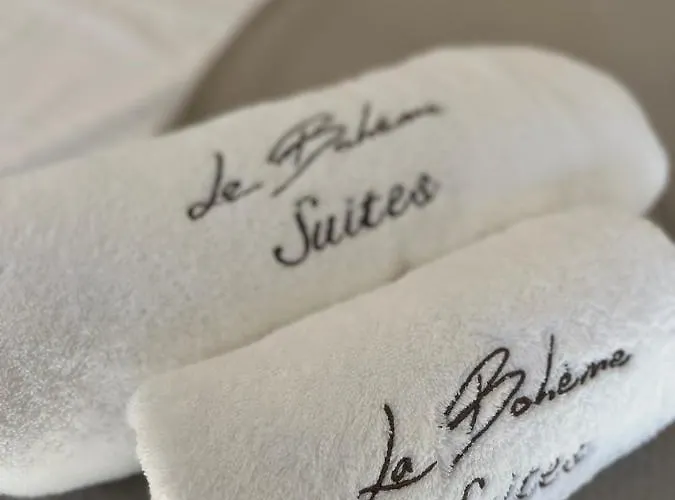 Le Bohème
Suites
La Bohème
Suites